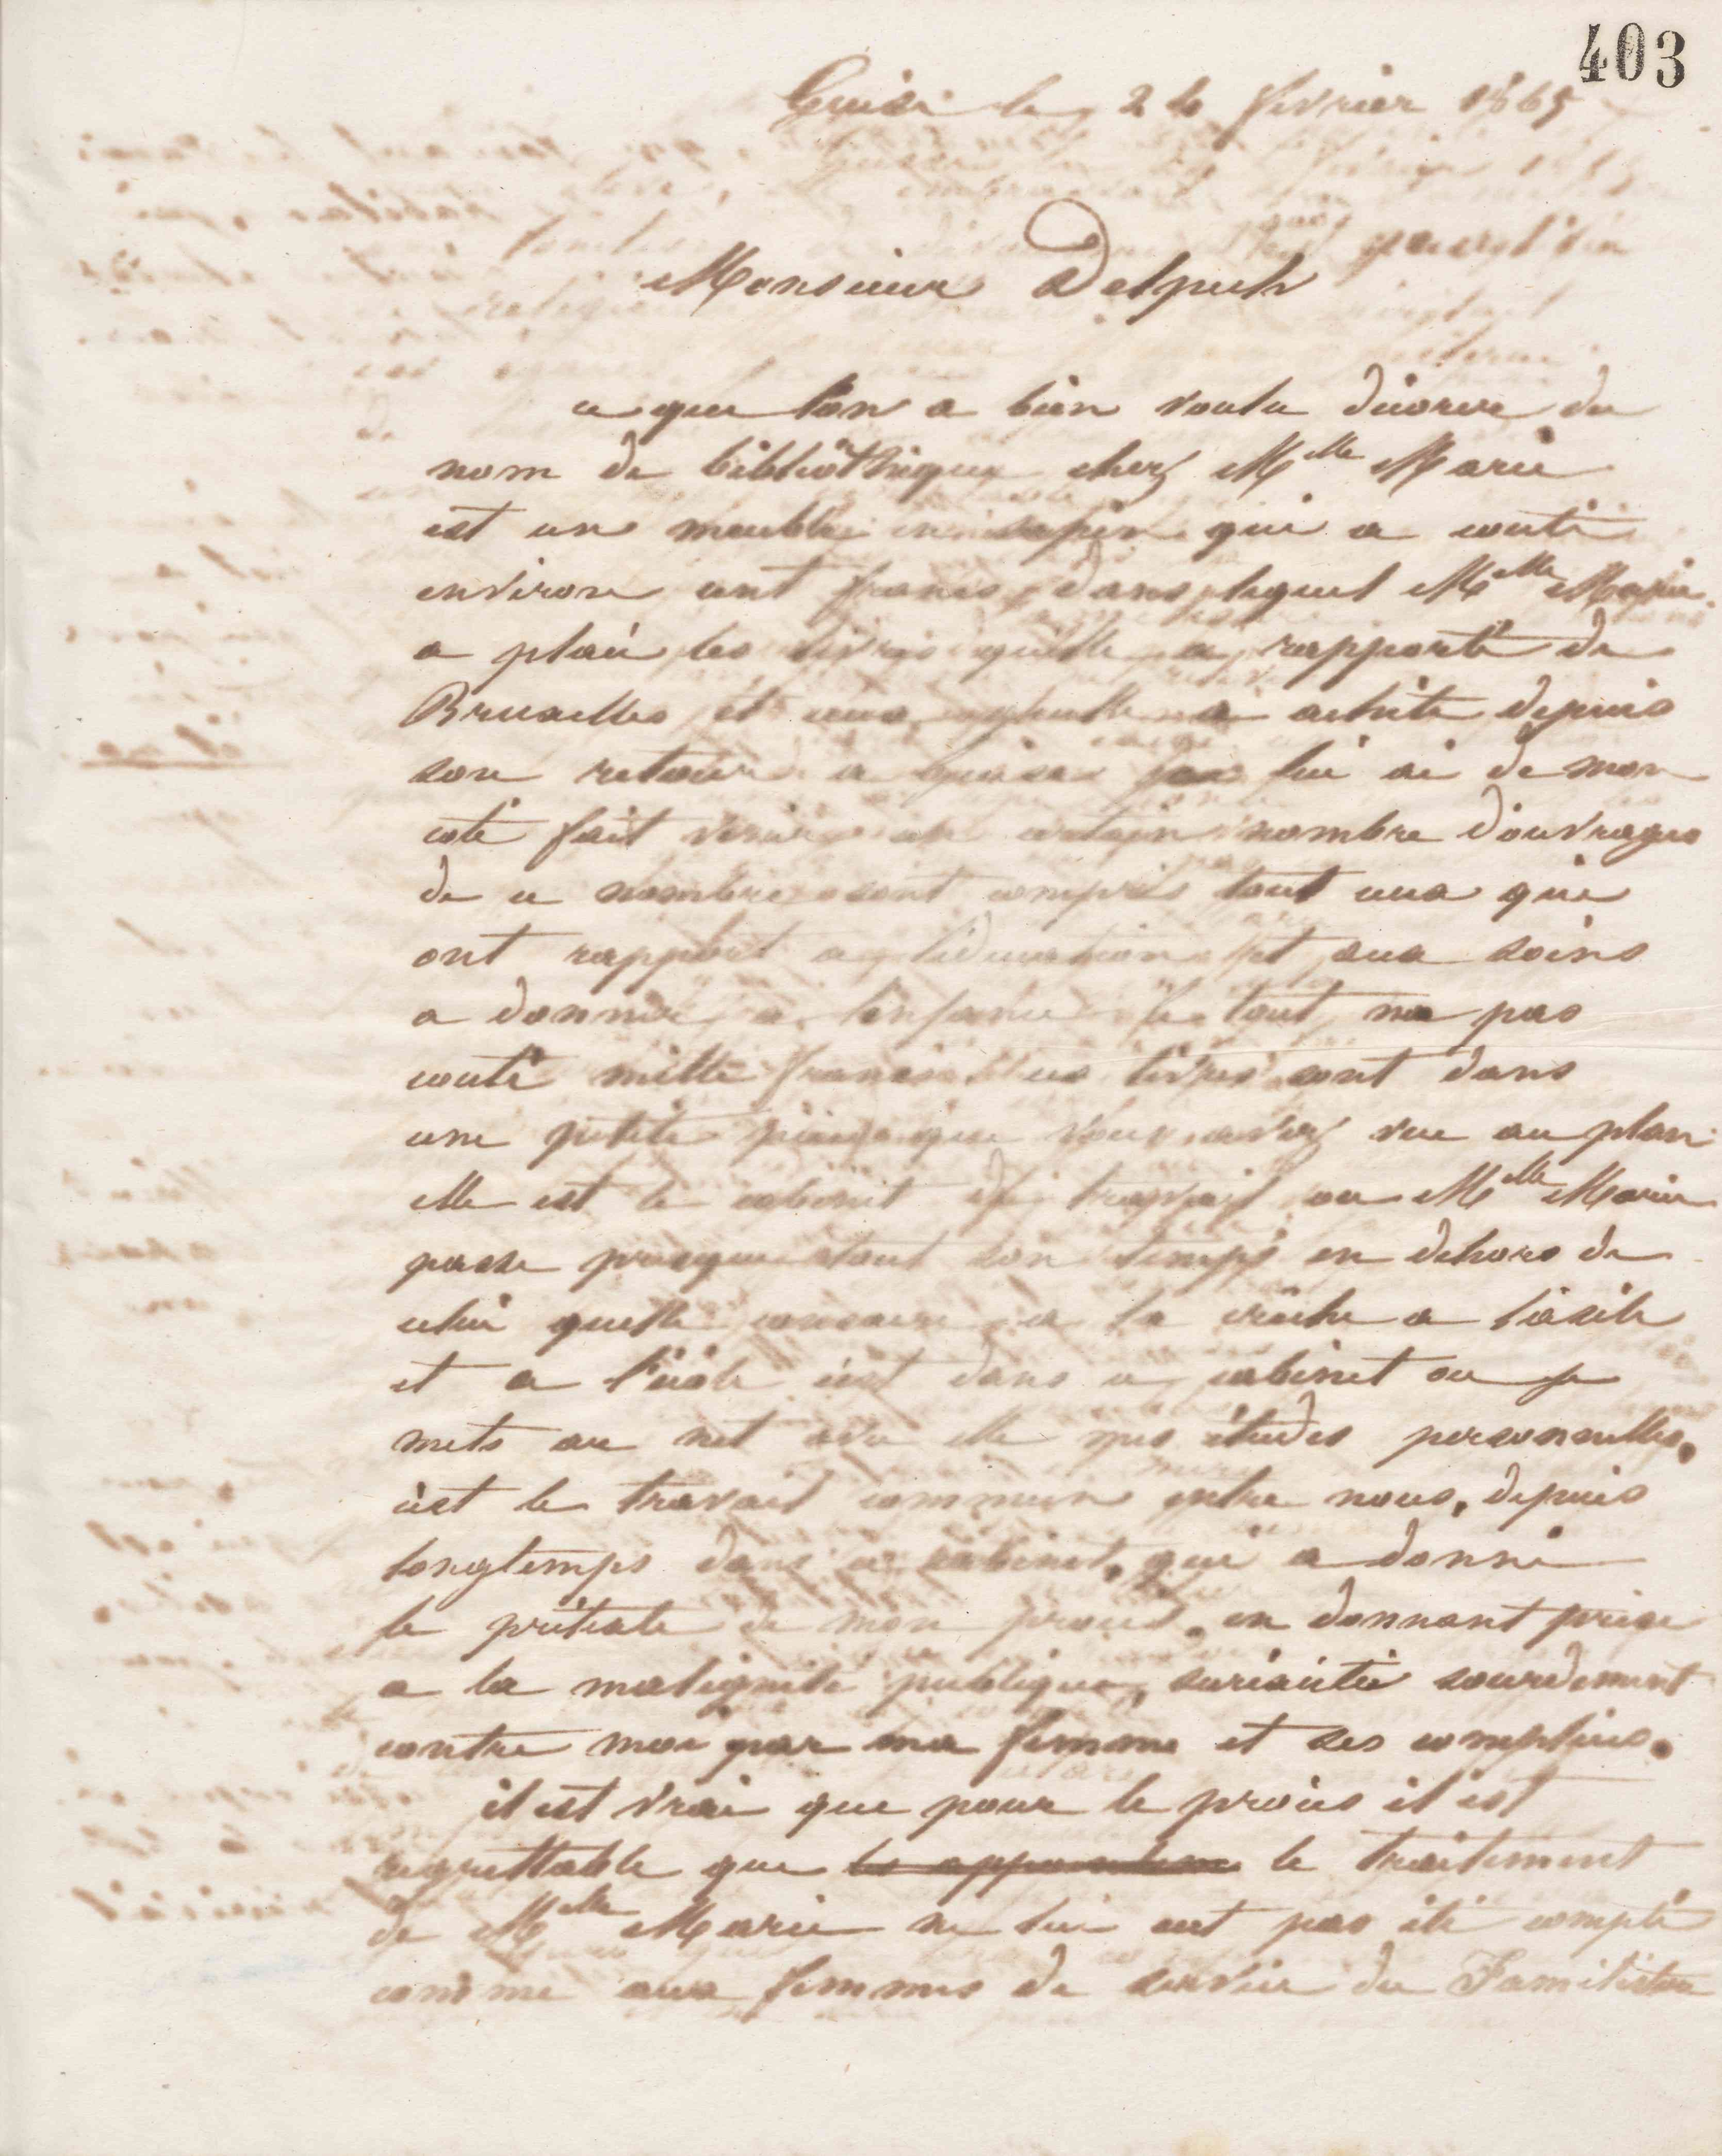 403
Guise le 24 février 1865
Monsieur Delpech
ce que l'on a bien voulu décorer du
nom de bibliothèque chez Mlle Marie
est un meuble en sapin qui a couté
environ cent francs, dans lequel Mlle Marie
a placé les livres quelle a rapporté de
Bruxelles et ceux quelle a acheté depuis
son retour a guise je lui ai de mon
coté fait venir un certain nombre d'ouvrages
de ce nombre sont compris tout ceux qui
ont rapport a l'éducation et aux soins
a donner a l'enfance le tout na pas
couté mille francs. ces livres sont dans
une petite pièce que vous avez vue au plan
elle est le cabinet de travail ou Mlle Marie
passe presque tout son temps en dehors de
celui quelle consacre a la crèche a l'asile
et a l'école c'est dans ce cabinet ou je
mets au net avec elle mes études personnelles,
c'est le travail commun entre nous, depuis
longtemps dans ce cabinet, qui a donné
le prétexte de mon procès, en donnant prise
a la malignité publique, surexcitée sourdement
contre moi par ma femme et ses complices.
il est vrai que pour le procès il est
regrettable que le traitement
de Mlle Marie ne lui ait pas été compté
comme aux femmes de service du Familistère